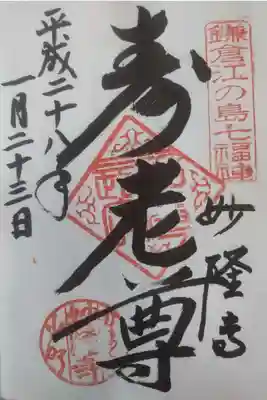 鎌倉江の島七福神
寿老尊
妙隆寺
平成二十八年
一月二十三日